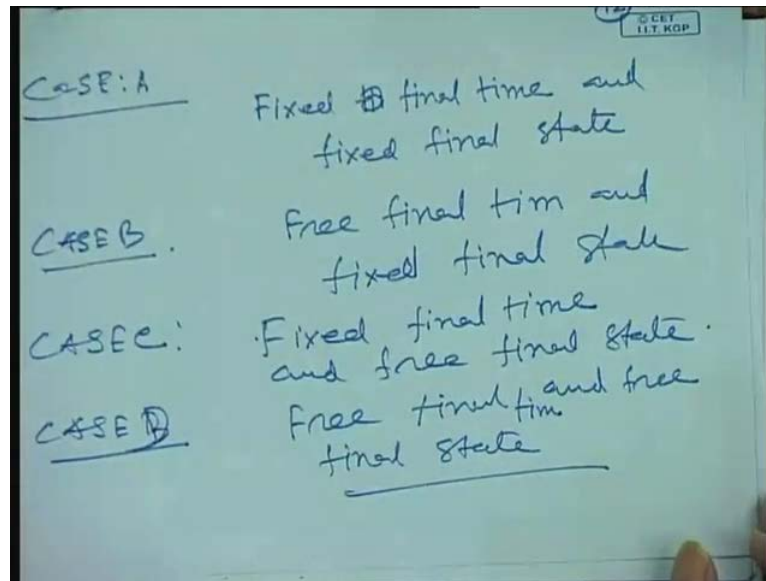 © CET
I.I.T. KGP
CASE: A Fixed final time and
fixed final state
CASE B. Free final tim and
fixed final state
CASE C: Fixed final time
and free final state.
CASE D Free final tim and free
final state